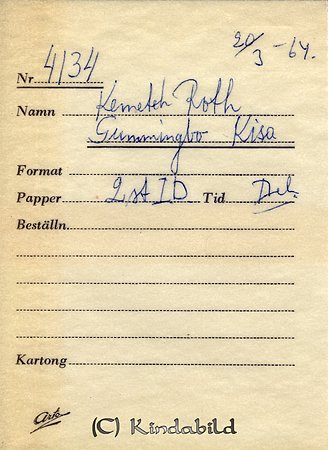 20/3 -64.
Nr 4134
Namn Kenneth Roth
Gummingbo Kisa
Format
Papper 2 st ID Tid Del.
Beställn.
Kartong
Ark
(C) Kindabild